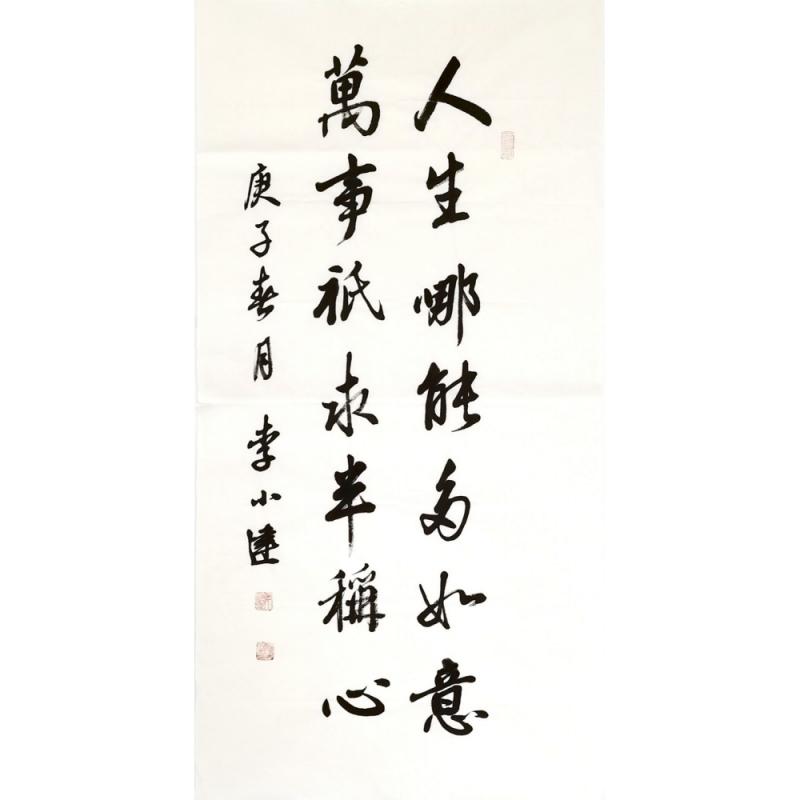 人生哪能多如意
萬事祇求半稱心
庚子春月 李小達